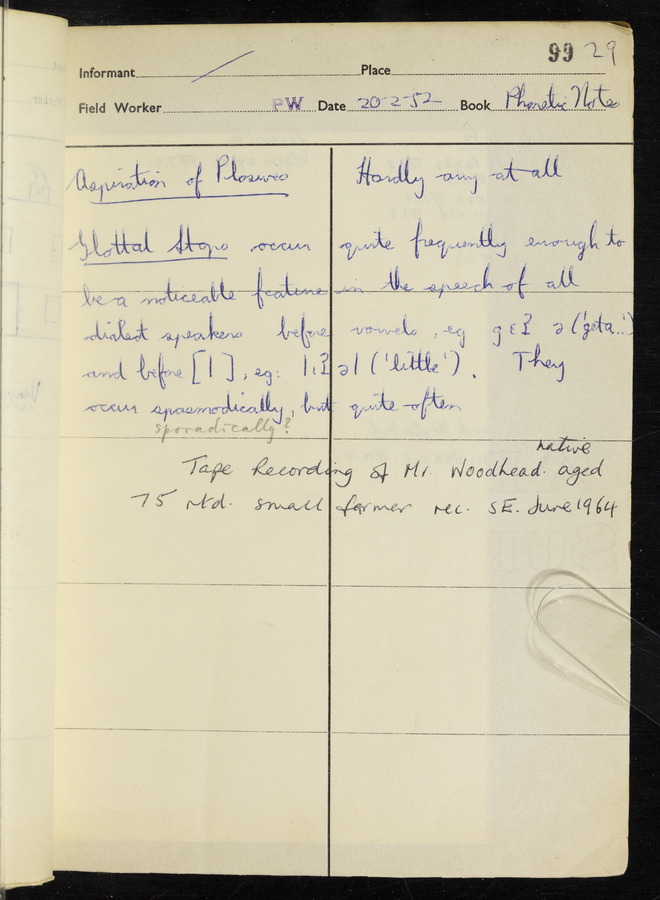 99 29
Informant / Place
Field Worker PW Date 20-2-52 Book Phonetic Notes
Aspiration of Plosives Hardly any at all
Glottal Stops occur quite frequently enough to
be a noticeable feature in the speech of all
dialect speakers before vowels, eg ('geta..')
and before [l], eg: ('little'). They
occur spasmodically, but quite often
sporadically?
native
Tape Recording of Mr. Woodhead. aged
75 rtd. small farmer rec. SE. June 1964